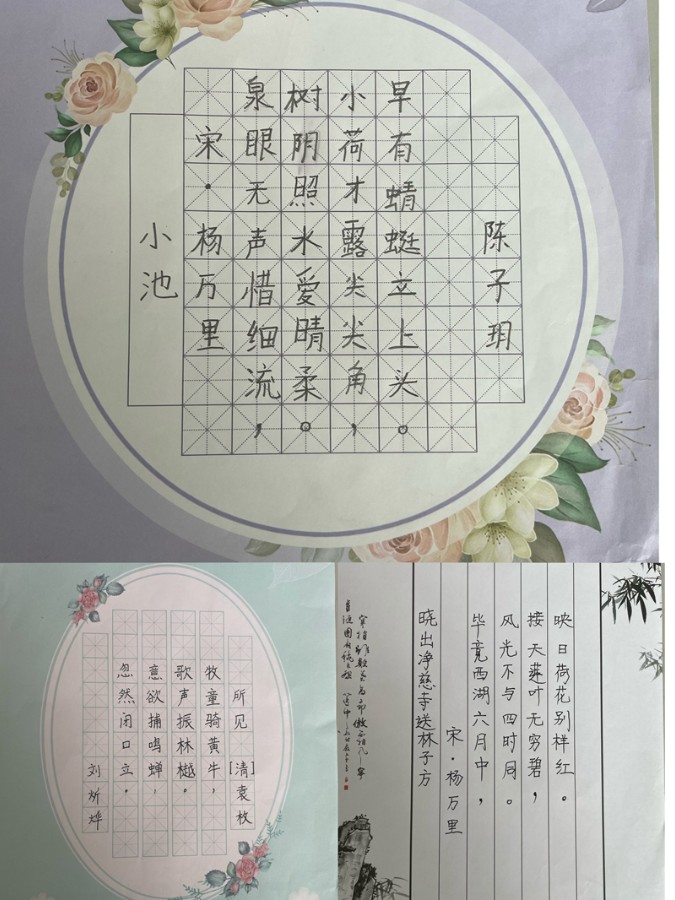 小池
宋·杨万里
泉眼无声惜细流，
树阴照水爱晴柔。
小荷才露尖尖角，
早有蜻蜓立上头。
陈子玥
所见 [清袁枚]
牧童骑黄牛，
歌声振林樾。
意欲捕鸣蝉，
忽然闭口立。
刘炘烨
晓出净慈寺送林子方
宋·杨万里
毕竟西湖六月中，
风光不与四时同。
接天莲叶无穷碧，
映日荷花别样红。